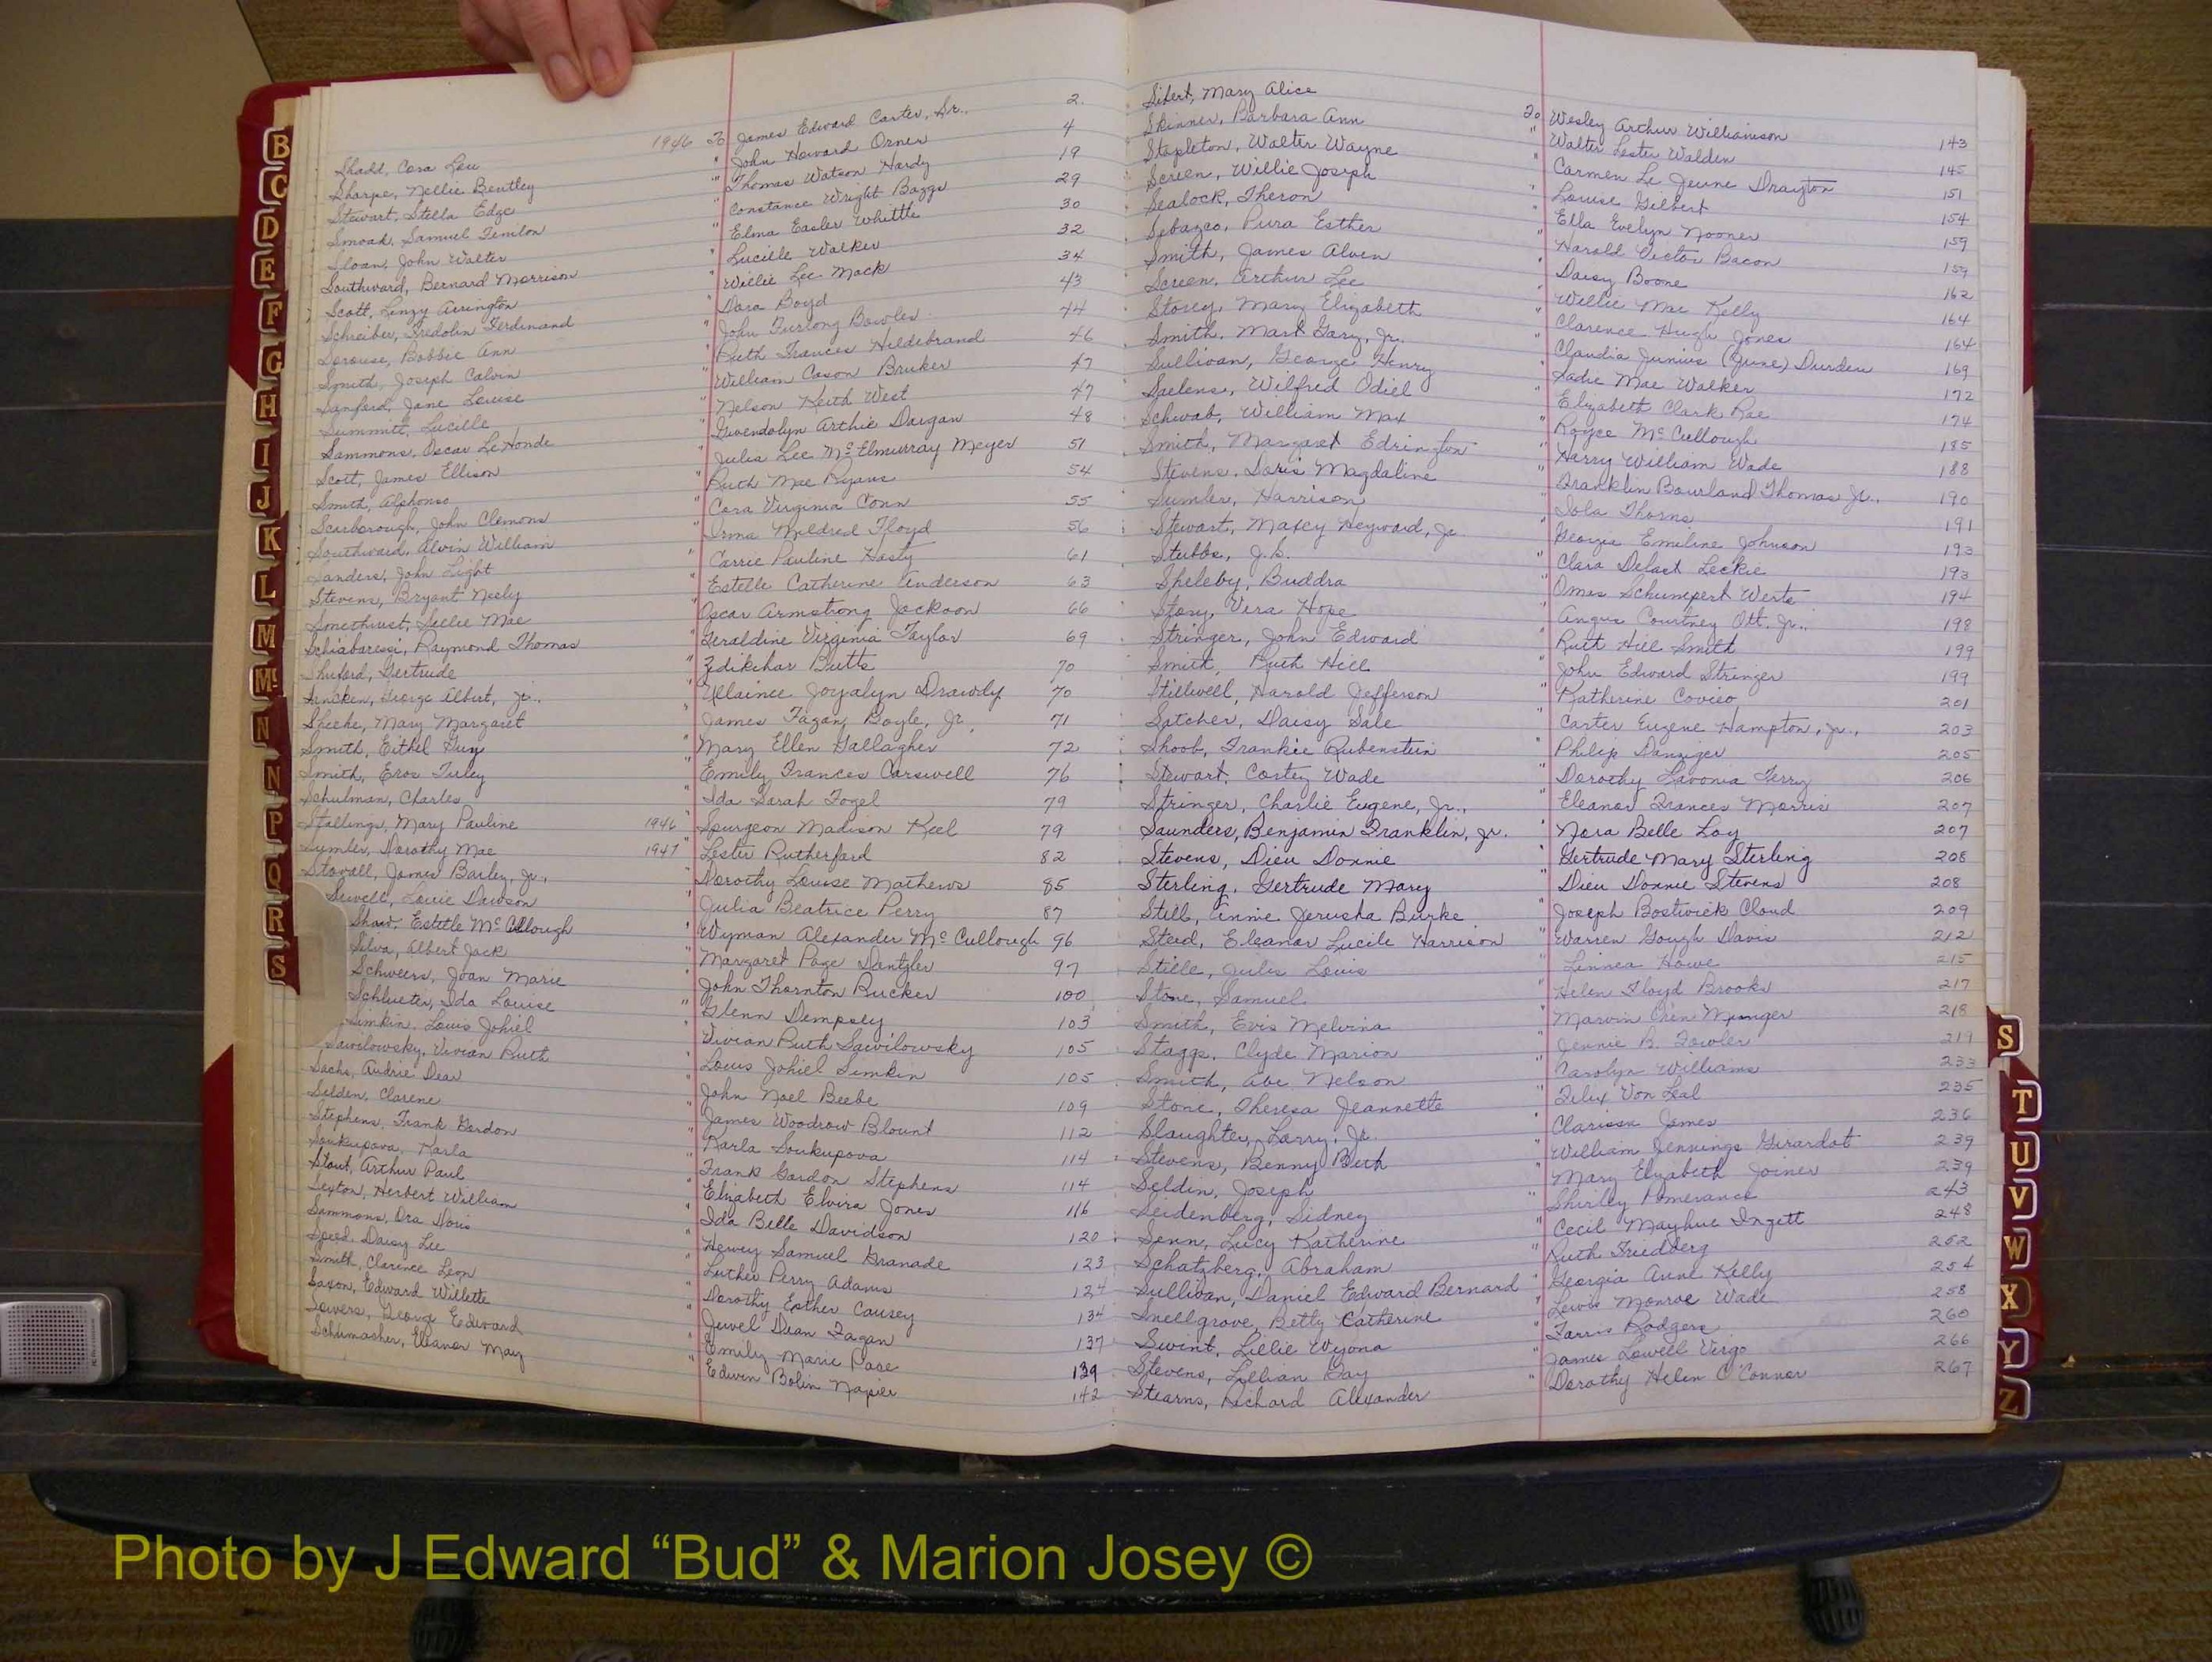 B
C
D
E
F
G
H
I
J
K
L
M
Mc
N
N
P
Q
R
S
Shadd, Cora Lou 1946 To James Edward Carter, Sr., 2.
Sharpe, Nellie Bentley " John Howard Orner 4
Stewart, Stella Edge " Thomas Watson Hardy 19
Smoak, Samuel Fenton " Constance Wright Baggs 29
Sloan, John Walter " Elma Easler Whittle 30
Southward, Bernard Morrison " Lucille Walker 32
Scott, Linzy Arrington " Willie Lee Mack 34
Schreiber, Fredolin Ferdinand " Dora Boyd 43
Sprouse, Bobbie Ann " John Furlong Bowles 44
Smith, Joseph Calvin " Ruth Frances Hildebrand 46
Sanford, Jane Louise " William Cason Bruker 47
Summitt, Lucille " Nelson Keith West 47
Sammons, Oscar LeHonde " Gwendolyn Arthie Dargan 48
Scott, James Ellison " Julia Lee McElmurray Meyer 51
Smith, Alphonso " Ruth Mae Ryans 54
Scarborough, John Clemons " Cora Virginia Conn 55
Southward, Alvin William " Irma Mildred Floyd 56
Sanders, John Light " Carrie Pauline Hasty 61
Stevens, Bryant Neely " Estelle Catherine 63
Smethurst, Lillie Mae " Oscar Armstrong Jackson 66
Raymond Thomas " Geraldine Virginia Taylor 69
Shuford, Gertrude " Butts 70
Sancken, George Albert, Jr., " Joyalyn Drawdy 70
Sheehe, Mary Margaret " James Fagan Boyle, Jr. 71
Smith, Eithel Guy " Mary Ellen Gallagher 72
Smith, Eros Tuley " Emily Frances Carswell 76
Schulman, Charles " Ida Sarah Fogel 79
Stallings, Mary Pauline 1946 " Spurgeon Madison Keel 79
Sumler, Dorothy Mae 1947 " Lester Rutherford 82
Stovall, James Bailey, Jr., " Dorothy Louise Mathews 85
Sewell, Louie Dawson " Julia Beatrice Perry 87
Shaw, Estelle McCullough " Wyman Alexander McCullough 96
Silva, Albert Jack " Margaret Page Dantzler 97
Schweers, Joan Marie " John Thornton Rucker 100
Schlueter, Ida Louise " Glenn Dempsey 103
Simkin, Louis Johiel " Vivian Ruth Sawilowsky 105
Sawilowsky, Vivian Ruth " Louis Johiel Simkin 105
Sachs, Audrie Dear " John Noel Beebe 109
Selden, Clarene " James Woodrow Blount 112
Stephens, Frank Gordon " Karla Soukupova 114
Soukupova, Karla " Frank Gordon Stephens 114
Stout, Arthur Paul " Elizabeth Elvira Jones 116
Sexton, Herbert William " Ida Belle Davidson 120
Sammons, Ora Doris " Hewey Samuel Granade 123
Speed, Daisy Lee " Luther Perry Adams 124
Smith, Clarence Leon " Dorothy Esther Causey 134
Saxon, Edward Willette " Jewel Dean Fagan 137
Sowers, George Edward " Emily Marie Pase 139
Schumacher, Eleanor May " Edwin Bolin Napier 142
Sifert, Mary Alice To Wesley Arthur Williamson 143
Skinner, Barbara Ann " Walter Lester Walden 145
Stapleton, Walter Wayne " Carmen Le Jeune Drayton 151
Screen, Willie Joseph " Louise Gilbert 154
Sealock, Theron " Ella Evelyn Nooner 159
Sebazco, Pura Esther " Harold Victor Bacon 159
Smith, James Alven " Daisy Boone 162
Screen, Arthur Lee " Willie Mae Kelly 164
Storey, Mary Elizabeth " Clarence Hugh Jones 164
Smith, Mark Gary, Jr. " Claudia Junius (June) Durden 169
Sullivan, George Henry " Sadie Mae Walker 172
Saelens, Wilfred Odiel " Elizabeth Clark Rae 174
Schwab, William Max " Royce McCullough 185
Smith, Margaret Edrington " Harry William Wade 188
Stevens, Doris Magdaline " Franklin Bourland Thomas Jr., 190
Sumler, Harrison " Iola Thorns 191
Stewart, Maxcy Heyward, Jr. " Georgia Emiline Johnson 193
Stubbs, J.S. " Clara Leckie 193
Sheleby, Buddra " Omes Schumpert Werts 194
Story, Vera Hope " Angus Courtney Ott, Jr., 198
Stringer, John Edward " Ruth Hill Smith 199
Smith, Ruth Hill " John Edward Stringer 199
Stillwell, Harold Jefferson " Katherine Covieo 201
Satcher, Daisy Sale " Carter Eugene Hampton, Jr., 203
Shoob, Frankie Rubenstein " Philip Danziger 205
Stewart, Cortez Wade " Dorothy Lavonia Terry 206
Stringer, Charlie Eugene, Jr., " Eleanor Frances Morris 207
Saunders, Benjamin Franklin, Jr. " Nora Belle Loy 207
Stevens, Dieu Donnie " Gertrude Mary Sterling 208
Sterling, Gertrude Mary " Dieu Donnie Stevens 208
Still, Annie Jerusha Burke " Joseph Bostwick Cloud 209
Steed, Eleanor Lucile Harrison " Warren Gough Davis 212
Stille, Jules Louis " Linnea Howe 215
Stone, Samuel " Helen Floyd Brooks 217
Smith, Evis Melvina " Marvin Oren Munger 218
Staggs, Clyde Marion " Jennie B. Fowler 219
Smith, Abe Nelson " Carolyn Williams 233
Stone, Theresa Jeannette " Felix Von Leal 235
Slaughter, Larry, Jr. " Clarissa James 236
Stevens, Benny Beth " William Jennings Girardot 239
Seldin, Joseph " Mary Elizabeth Joiner 239
Seidenberg, Sidney " Shirley Pomerance 243
Senn, Lucy Katherine " Cecil Mayhue Ingett 248
Schatzberg, Abraham " Ruth Friedberg 252
Sullivan, Daniel Edward Bernard " Georgia Anne Kelly 254
Snellgrove, Betty Catherine " Lewis Monroe Wade 258
Swint, Lillie Wynona " Farris Rodgers 260
Stevens, Lillian Gay " James Lowell Virgo 266
Stearns, Richard Alexander " Dorothy Helen O'Connor 267
S
T
U
V
W
X
Y
Z
Photo by J Edward “Bud” & Marion Josey ©